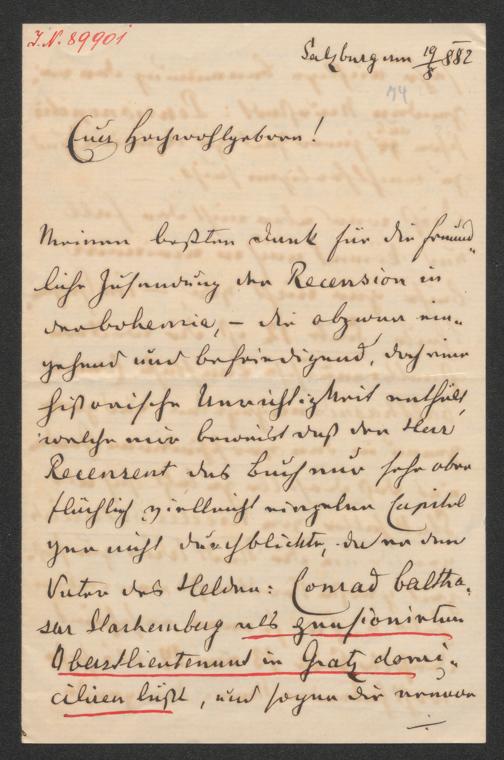 J. N. 89901
Salzburg am 19/8 882
74
Euer Hochwohlgeboren!
Meinen beßten Dank für die freund-
liche Zusendung der Recension in
der bohemia, – die obzwar ein-
gehend und befriedigend, doch eine
historische Unrichtigkeit enthält,
welche mir beweist daß der Herr
Recensent das Buch nur sehr ober
flächlich vielleicht einzelne Capitel
gar nicht durchblickte, da er den
Vater des Helden: Conrad baltha-
sar Starhemberg als pensionirten
Oberstlieutenant in Gratz domi-
ciliren läßt, und sogar die